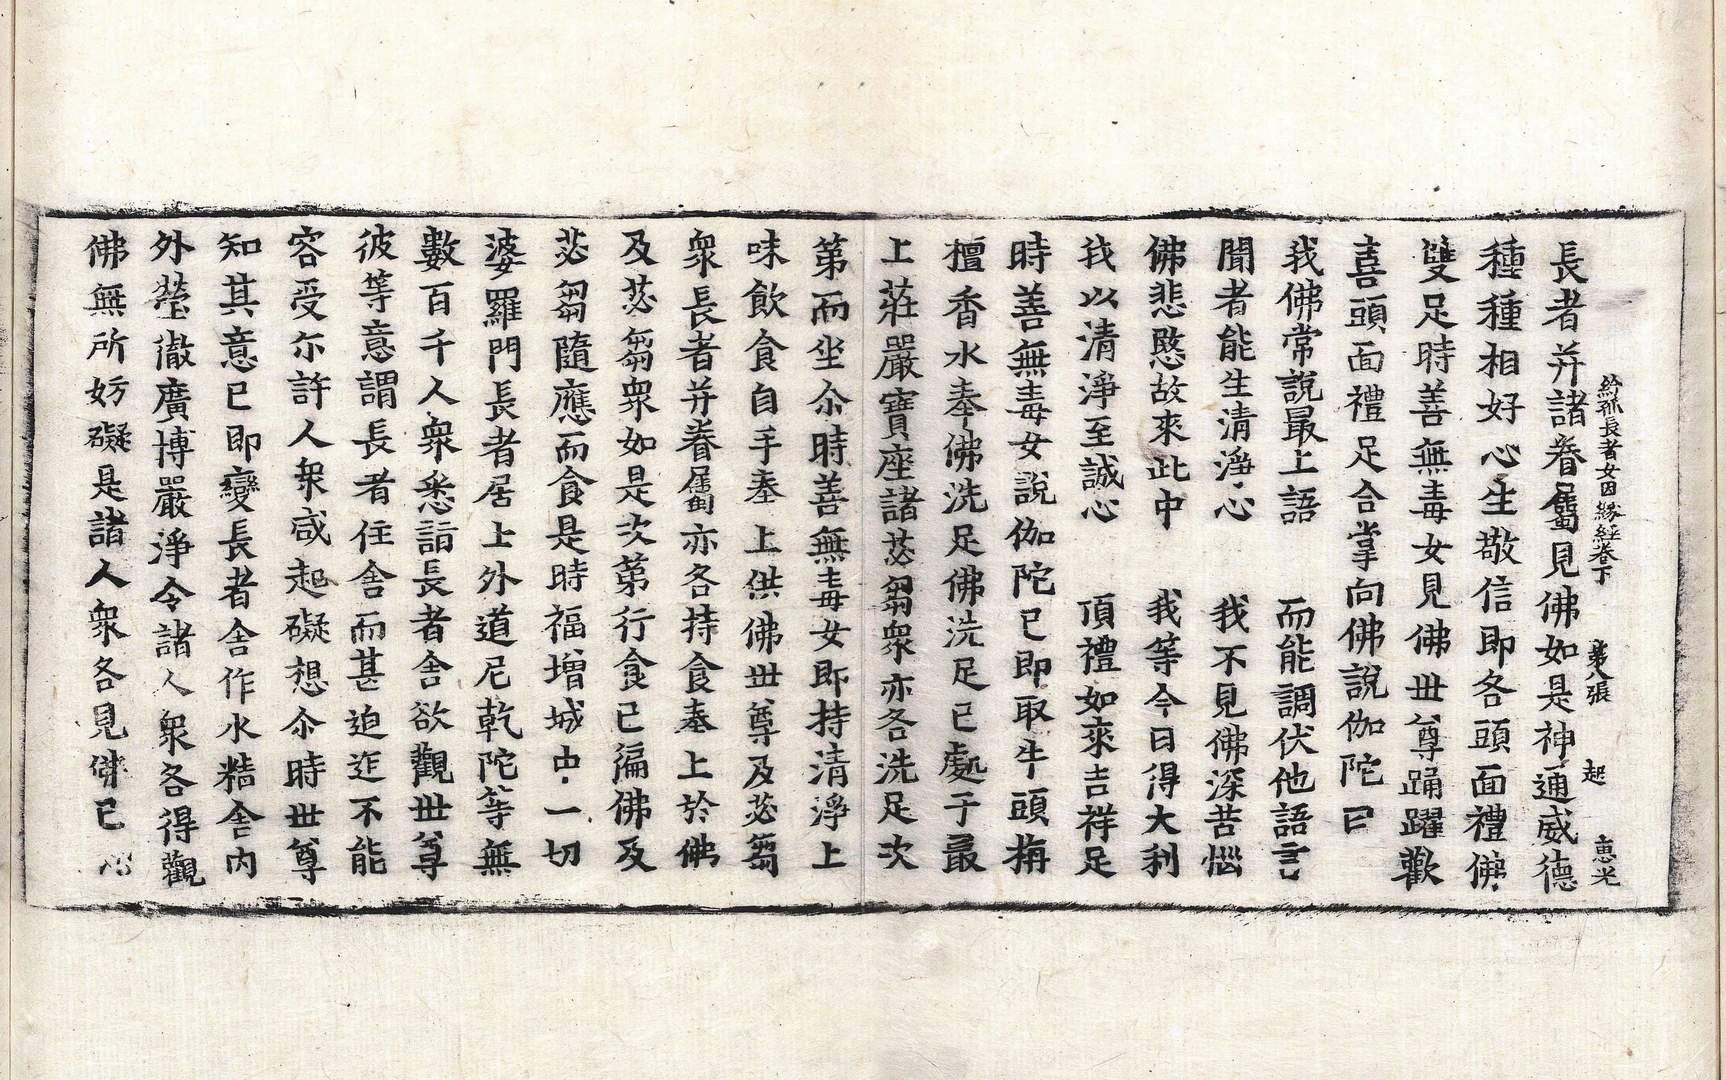 給孤長者女因緣經卷下 第八張 起 惠光
長者并諸眷屬見佛如是神通威德
種種相好心生敬信即各頭面禮佛
雙足時善無毒女見佛世尊踊躍歡
喜頭面禮足合掌向佛說伽陀曰
我佛常說最上語 而能調伏他語言
聞者能生清淨心 我不見佛深苦惱
佛悲愍故來此中 我等今日得大利
我以清淨至誠心 頂禮如來吉祥足
時善無毒女說伽陀已即取牛頭栴
檀香水奉佛洗足佛洗足已處于最
上莊嚴寶座諸苾芻衆亦各洗足次
第而坐尒時善無毒女即持清淨上
味飲食自手奉上供佛世尊及苾芻
衆長者并眷屬亦各持食奉上於佛
及苾芻衆如是次第行食已徧佛及
苾芻隨應而食是時福增城中一切
婆羅門長者居士外道尼乾陀等無
數百千人衆悉詣長者舍欲觀世尊
彼等意謂長者住舍而甚迫迮不能
容受尒許人衆咸起礙想尒時世尊
知其意已即變長者舍作水精舍内
外瑩澈廣博嚴淨令諸人衆各得觀
佛無所妨礙是諸人衆各見佛已